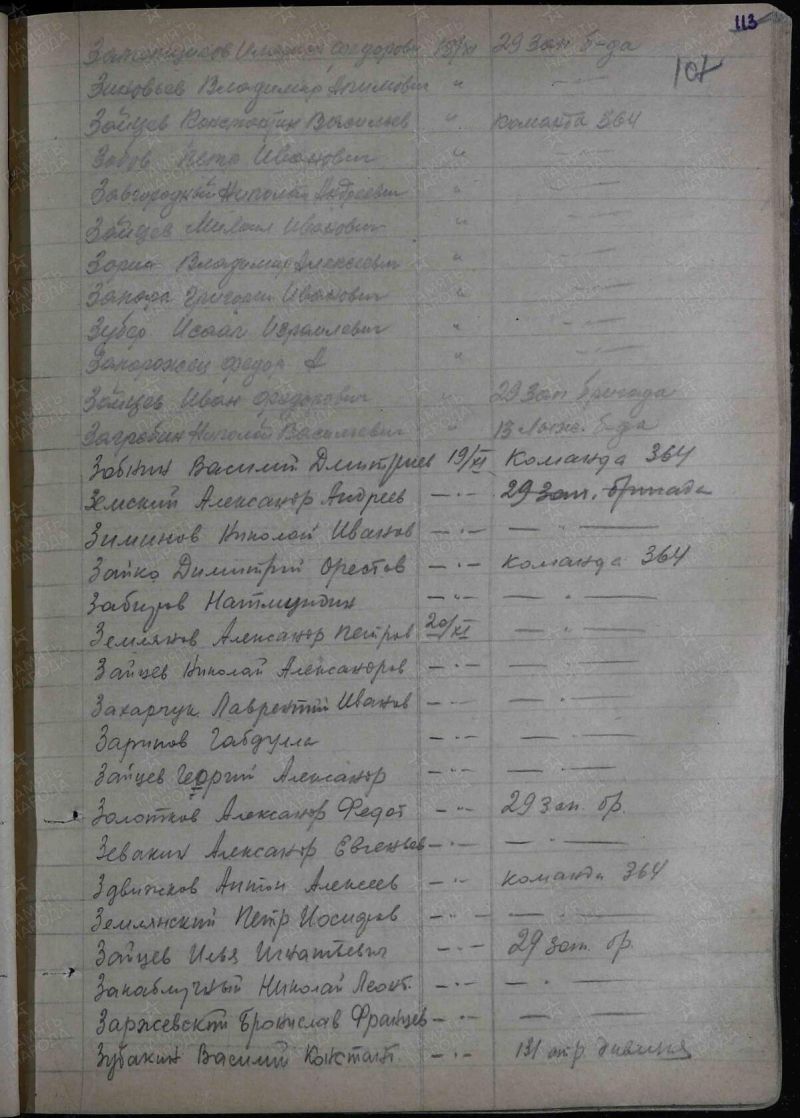 113
107
Игнатий Федорович 18/XI 29 Зап б-да
Зиновьев Владимир Акимович " —"—
Зайцев Константин Васильев " команда 364
Зобов Петр Иванович " —"—
Завгородный Николай Андреевич " —"—
Зайцев Михаил Иванович " —"—
Зорин Владимир Алексеевич " —"—
Григорий Иванович " —"—
Зубер Исаак Израилевич " —"—
Запорожец Федор А " —"—
Зайцев Иван Федорович " 29 Зап бригада
Загребин Николай Васильевич " 13 б-да
Забнин Василий Дмитриев 19/XI Команда 364
Земский Александр Андреев —"— 29 зап. бригада
Зиминов Николай Иванов —"— —"—
Зайко Димитрий Орестов —"— команда 364
Забиров —"— —"—
Земляков Александр Петров 20/XI —"—
Зайцев Николай Александров —"— —"—
Захарчук Лаврентий Иванов —"— —"—
Зарипов Габдулла —"— —"—
Зайцев Георгий Александр —"— —"—
Золотков Александр Федот —"— 29 зап. бр.
Зевакин Александр Евгеньев —"— —"—
Здвижков Антон Алексеев —"— команда 364
Землянский Петр Иосифов —"— —"—
Зайцев Илья Игнатьевич —"— 29 зап. бр.
Закаблучный Николай Леонт. —"— —"—
Заржевский Бронислав Францев —"— —"—
Зубакин Василий Констант —"— 131 стр. дивизия